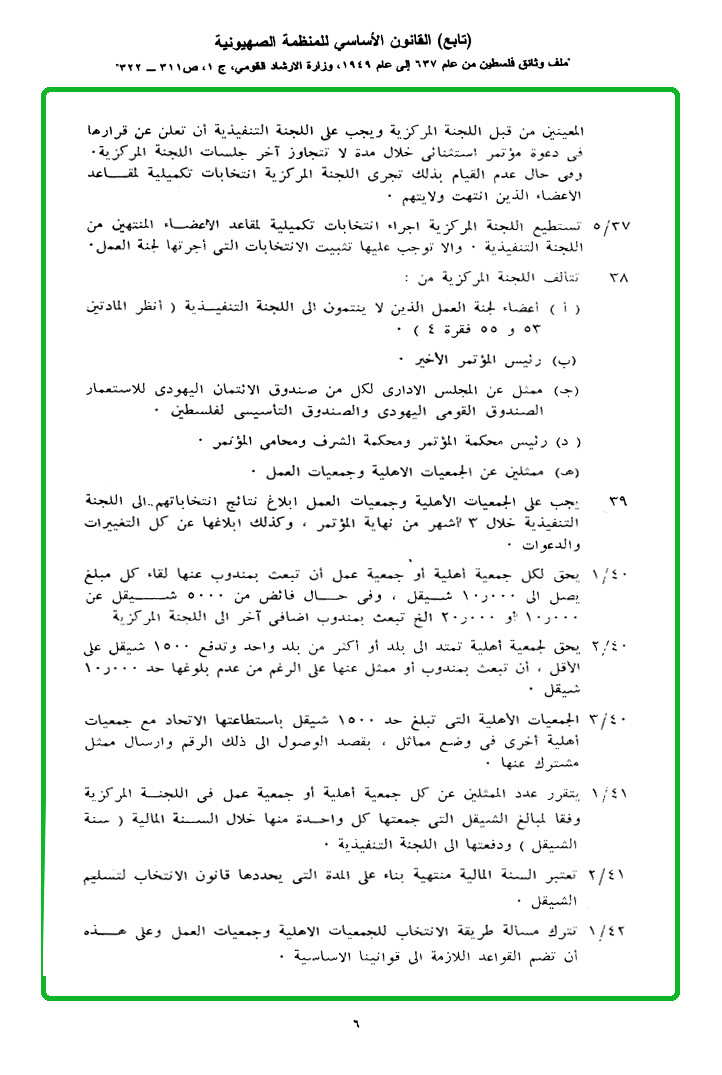 (تابع) القانون الأساسي للمنظمة الصهيونية
"ملف وثائق فلسطين من عام ٦٣٧ إلى عام ١٩٤٩، وزارة الارشاد القومي، ج ١، ص ٣١١ – ٣٢٢"
المعينين من قبل اللجنة المركزية ويجب على اللجنة التنفيذية أن تعلن عن قرارها
فى دعوة مؤتمر استثنائى خلال مدة لا تتجاوز آخر جلسات اللجنة المركزية٠
وفى حال عدم القيام بذلك تجرى اللجنة المركزية انتخابات تكميلية لمقـــاعد
الأعضاء الذين انتهت ولايتهم ٠
٥/٣٧ تستطيع اللجنة المركزية اجراء انتخابات تكميلية لمقاعد الاعضـــاء المنتهين من
اللجنة التنفيذية ٠ والا توجب عليها تثبيت الانتخابات التى أجرتها لجنة العمل٠
٣٨ تتألف اللجنة المركزية من :
( أ ) أعضاء لجنة العمل الذين لا ينتمون الى اللجنة التنفيــذية ( أنظر المادتين
٥٣ و ٥٥ فقرة ٤ ) ٠
(ب) رئيس المؤتمر الأخير ٠
(جـ) ممثل عن المجلس الادارى لكل من صندوق الائتمان اليهودى للاستعمار
الصندوق القومى اليهودى والصندوق التأسيسى لفلسطين ٠
( د ) رئيس محكمة المؤتمر ومحكمة الشرف ومحامى المؤتمر ٠
(هـ) ممثلين عن الجمعيات الاهلية وجمعيات العمل ٠
٣٩ يجب على الجمعيات الأهلية وجمعيات العمل ابلاغ نتائج انتخاباتهم..الى اللجنة
التنفيذية خلال ٣ أشهر من نهاية المؤتمر ، وكذلك ابلاغها عن كل التغييرات
والدعوات ٠
١/٤٠ يحق لكل جمعية أهلية أو جمعية عمل أن تبعث بمندوب عنها لقاء كل مبلغ
يصل الى ١٠ر٠٠٠ شـيقل ، وفى حـــال فائض من ٥٠٠٠ شـــــيقل عن
١٠ر٠٠٠ أو ٢٠ر٠٠٠ الخ تبعث بمندوب اضافى آخر الى اللجنة المركزية
٢/٤٠ يحق لجمعية أهلية تمتد الى بلد أو أكثر من بلد واحد وتدفع ١٥٠٠ شيقل على
الأقل ، أن تبعث بمندوب أو ممثل عنها على الرغم من عدم بلوغها حد ١٠ر٠٠٠
شيقل ٠
٣/٤٠ الجمعيات الأهلية التى تبلغ حد ١٥٠٠ شيقل باستطاعتها الاتحاد مع جمعيات
أهلية أخرى فى وضع مماثل ، بقصد الوصول الى ذلك الرقم وارسال ممثل
مشترك عنها ٠
١/٤١ يتقرر عدد الممثلين عن كل جمعية أهلية أو جمعية عمل فى اللجنـــة المركزية
وفقا لمبالغ الشيقل التى جمعتها كل واحــدة منها خلال السـنة المالية ( سنة
الشيقل ) ودفعتها الى اللجنة التنفيذية ٠
٢/٤١ تعتبر السنة المالية منتهية بناء على المدة التى يحددها قانون الانتخاب لتسليم
الشيقل ٠
١/٤٢ تترك مسالة طريقة الانتخاب للجمعيات الاهلية وجمعيات العمل وعلى هـــذه
أن تضم القواعد اللازمة الى قوانينا الاساسية ٠
٦